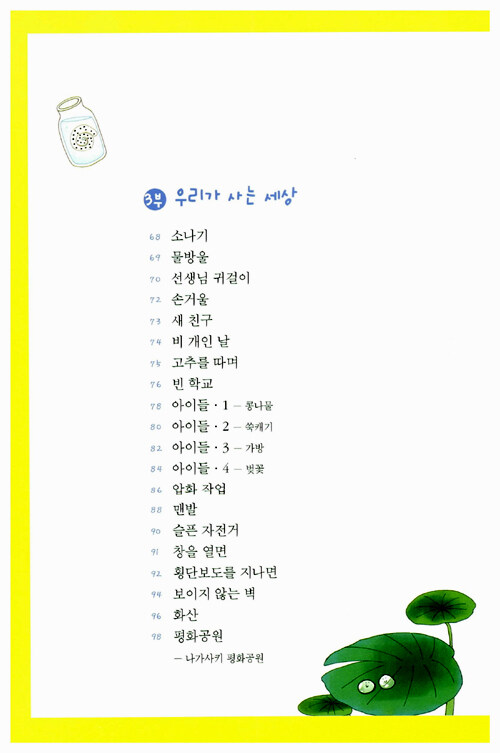 3부 우리가 사는 세상
68 소나기
69 물방울
70 선생님 귀걸이
72 손거울
73 새 친구
74 비 개인 날
75 고추를 따며
76 빈 학교
78 아이들·1 – 콩나물
80 아이들·2 – 쑥캐기
82 아이들·3 – 가방
84 아이들·4 – 벚꽃
86 압화 작업
88 맨발
90 슬픈 자전거
91 창을 열면
92 횡단보도를 지나면
94 보이지 않는 벽
96 화산
98 평화공원
– 나가사키 평화공원